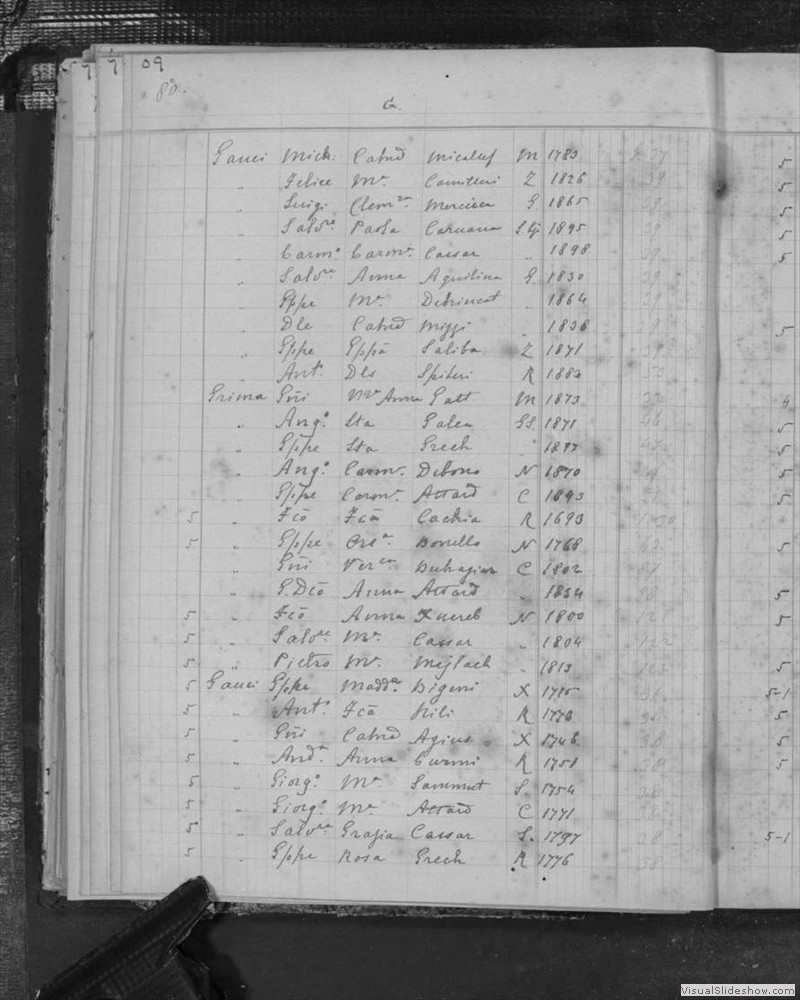 09
80.
G.
5 Gauci Mich. Catnd Micalef M 1783 37 5
" Felice Ma. Camilleri Z 1826 39 5
" Luigi Clemza Mercieca G 1865 39 5
" Salvre Paola Caruana S.lj 1895 39 5
" Carmo Carma Cassar " 1898 39 5
" Salvre Anna Aquilina G 1830 39
" Gppe Ma. Debrincat " 1864 39
" Dle Catnd Mizzi " 1838 39 5
" Gppe Gppa Saliba Z 1871 39
" Anto Dls Spiteri R 1883
Grima Gni Ma Anna Gatt M 1873 4
" Ango Sta Galea GS. 1871 46 5
" Gppe Sta Grech " 1877 5
" Ango Carma. Debono N 1870 5
" Gppe Carma. Attard C 1893 5
5 " Fco Fca Cachia R 1693
5 " Gppe Orsa. Borello N 1768 62 5
" Gni Verca Buhagiar C 1802
" G.Dco Anna Attard " 1834 5
5 " Fco Anna Xuereb N 1800 5
5 " Salvre Ma. Cassar " 1804 122
5 " Pietro Ma. Mejlach " 1813 5
5 Gauci Gppe Madda. Bigeni X 1715 5-1
5 " Anto Fca Hili R 1773 5
5 " Gni Catnd Agius X 1748 38 5
5 " Anda Anna Curmi R 1751 38 5
5 " Giorgo Ma Sammut S. 1754
5 " Giorgo Ma. Attard C 1771
5 " Salvre Grazia Cassar S. 1797 5-1
5 " Gppe Rosa Grech R 1776 38
VisualSlideshow.com